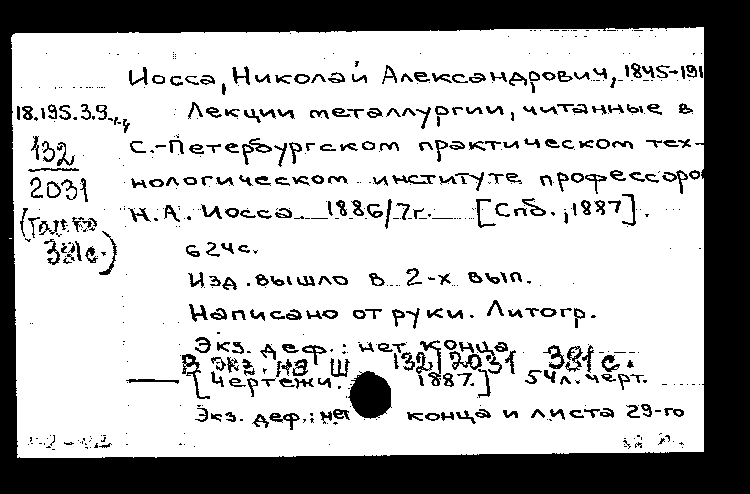 Иосса, Николай Александрович, 1845-191
18.195.3.9
Лекции металлургии, читанные в
132
2031
(только
381 с.)
С.-Петербургском практическом тех-
нологическом институте профессоро
Н.А. Иосса. 1886/7г. [Спб., 1887].
624с.
Изд. вышло в 2-х вып.
Написано от руки. Литогр.
Экз. деф.: нет конца
В экз. на Ш 132/2031 381 с.
[Чертежи. 1887.] 54л. черт.
Экз. деф.: нет конца и листа 29-го